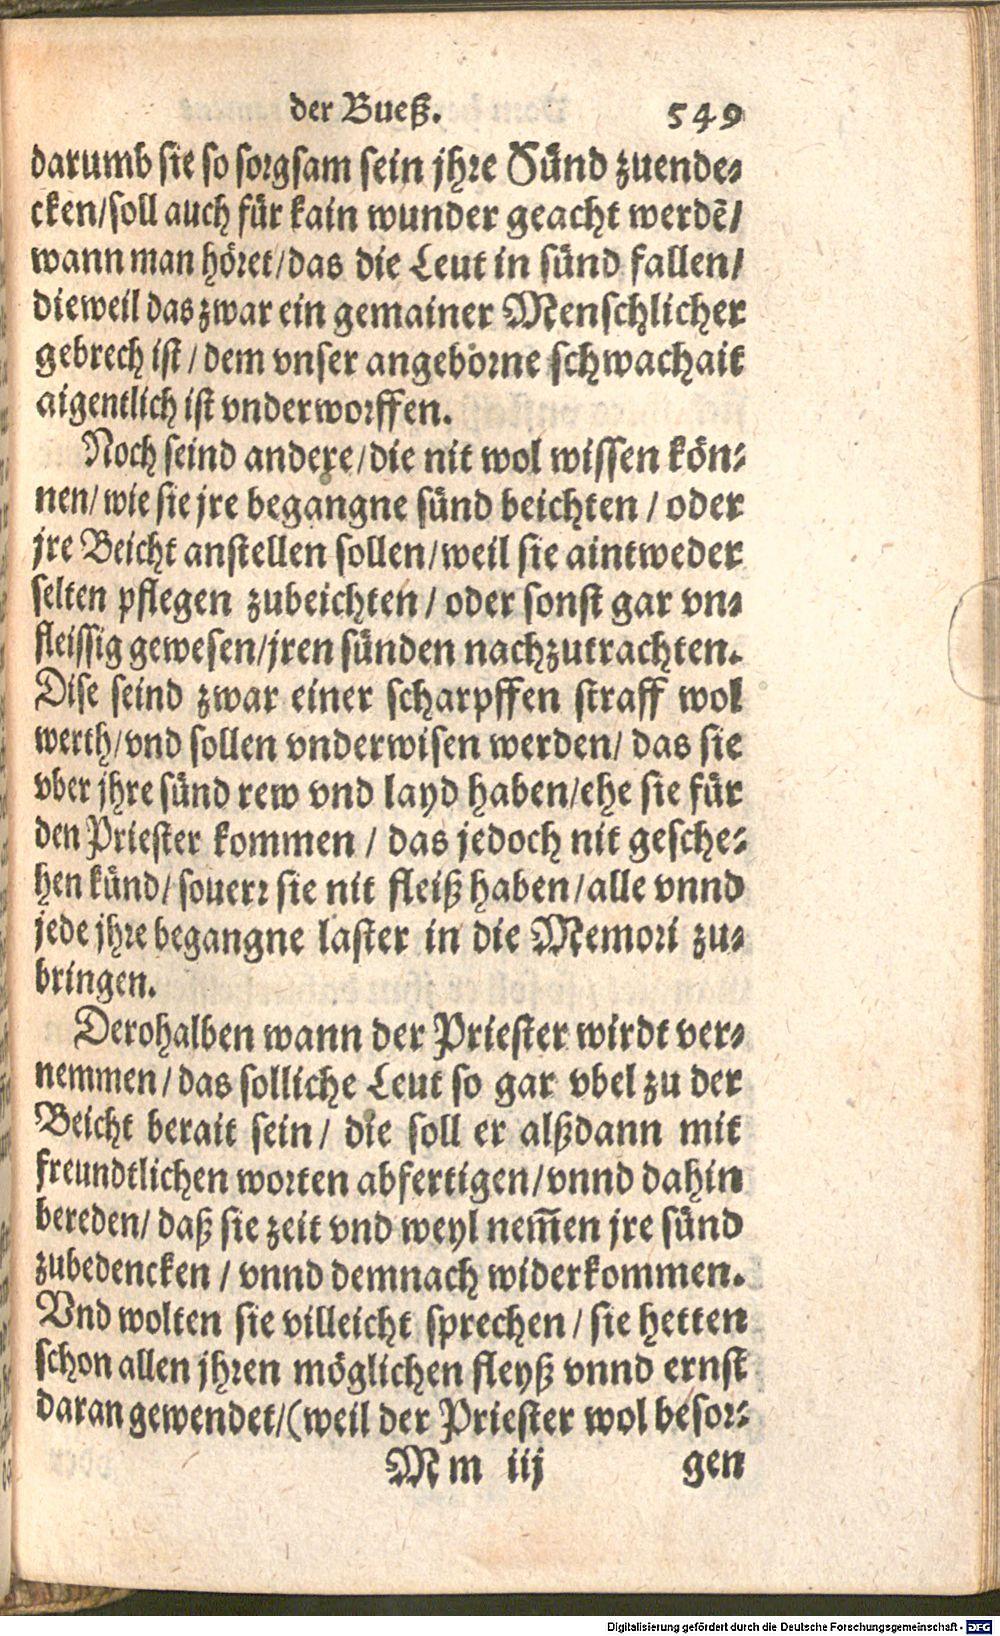 der Bueß. 549
darumb sie so sorgsam sein jhre Sünd zuende-
cken/soll auch für kain wunder geacht werdẽ/
wann man höret/das die Leut in sünd fallen/
dieweil das zwar ein gemainer Menschlicher
gebrech ist / dem vnser angeborne schwachait
aigentlich ist vnderworffen.
Noch seind andere/die nit wol wissen kön-
nen/ wie sie jre begangne sünd beichten / oder
jre Beicht anstellen sollen/weil sie aintweder
selten pflegen zubeichten / oder sonst gar vn-
fleissig gewesen/jren sünden nachzutrachten.
Dise seind zwar einer scharpffen straff wol
werth/vnd sollen vnderwisen werden/ das sie
vber jhre sünd rew vnd layd haben/ehe sie für
den Priester kommen / das jedoch nit gesche-
hen künd/ souerr sie nit fleiß haben/alle vnnd
jede jhre begangne laster in die Memori zu-
bringen.
Derohalben wann der Priester wirdt ver-
nemmen/das solliche Leut so gar vbel zu der
Beicht berait sein/ die soll er alßdann mit
freundtlichen worten abfertigen/vnnd dahin
bereden/ daß sie zeit vnd weyl nem̃en jre sünd
zubedencken / vnnd demnach widerkommen.
Vnd wolten sie villeicht sprechen / sie hetten
schon allen jhren möglichen fleyß vnnd ernst
daran gewendet/(weil der Priester wol besor-
Mm iij gen
Digitalisierung gefördert durch die Deutsche Forschungsgemeinschaft - DFG